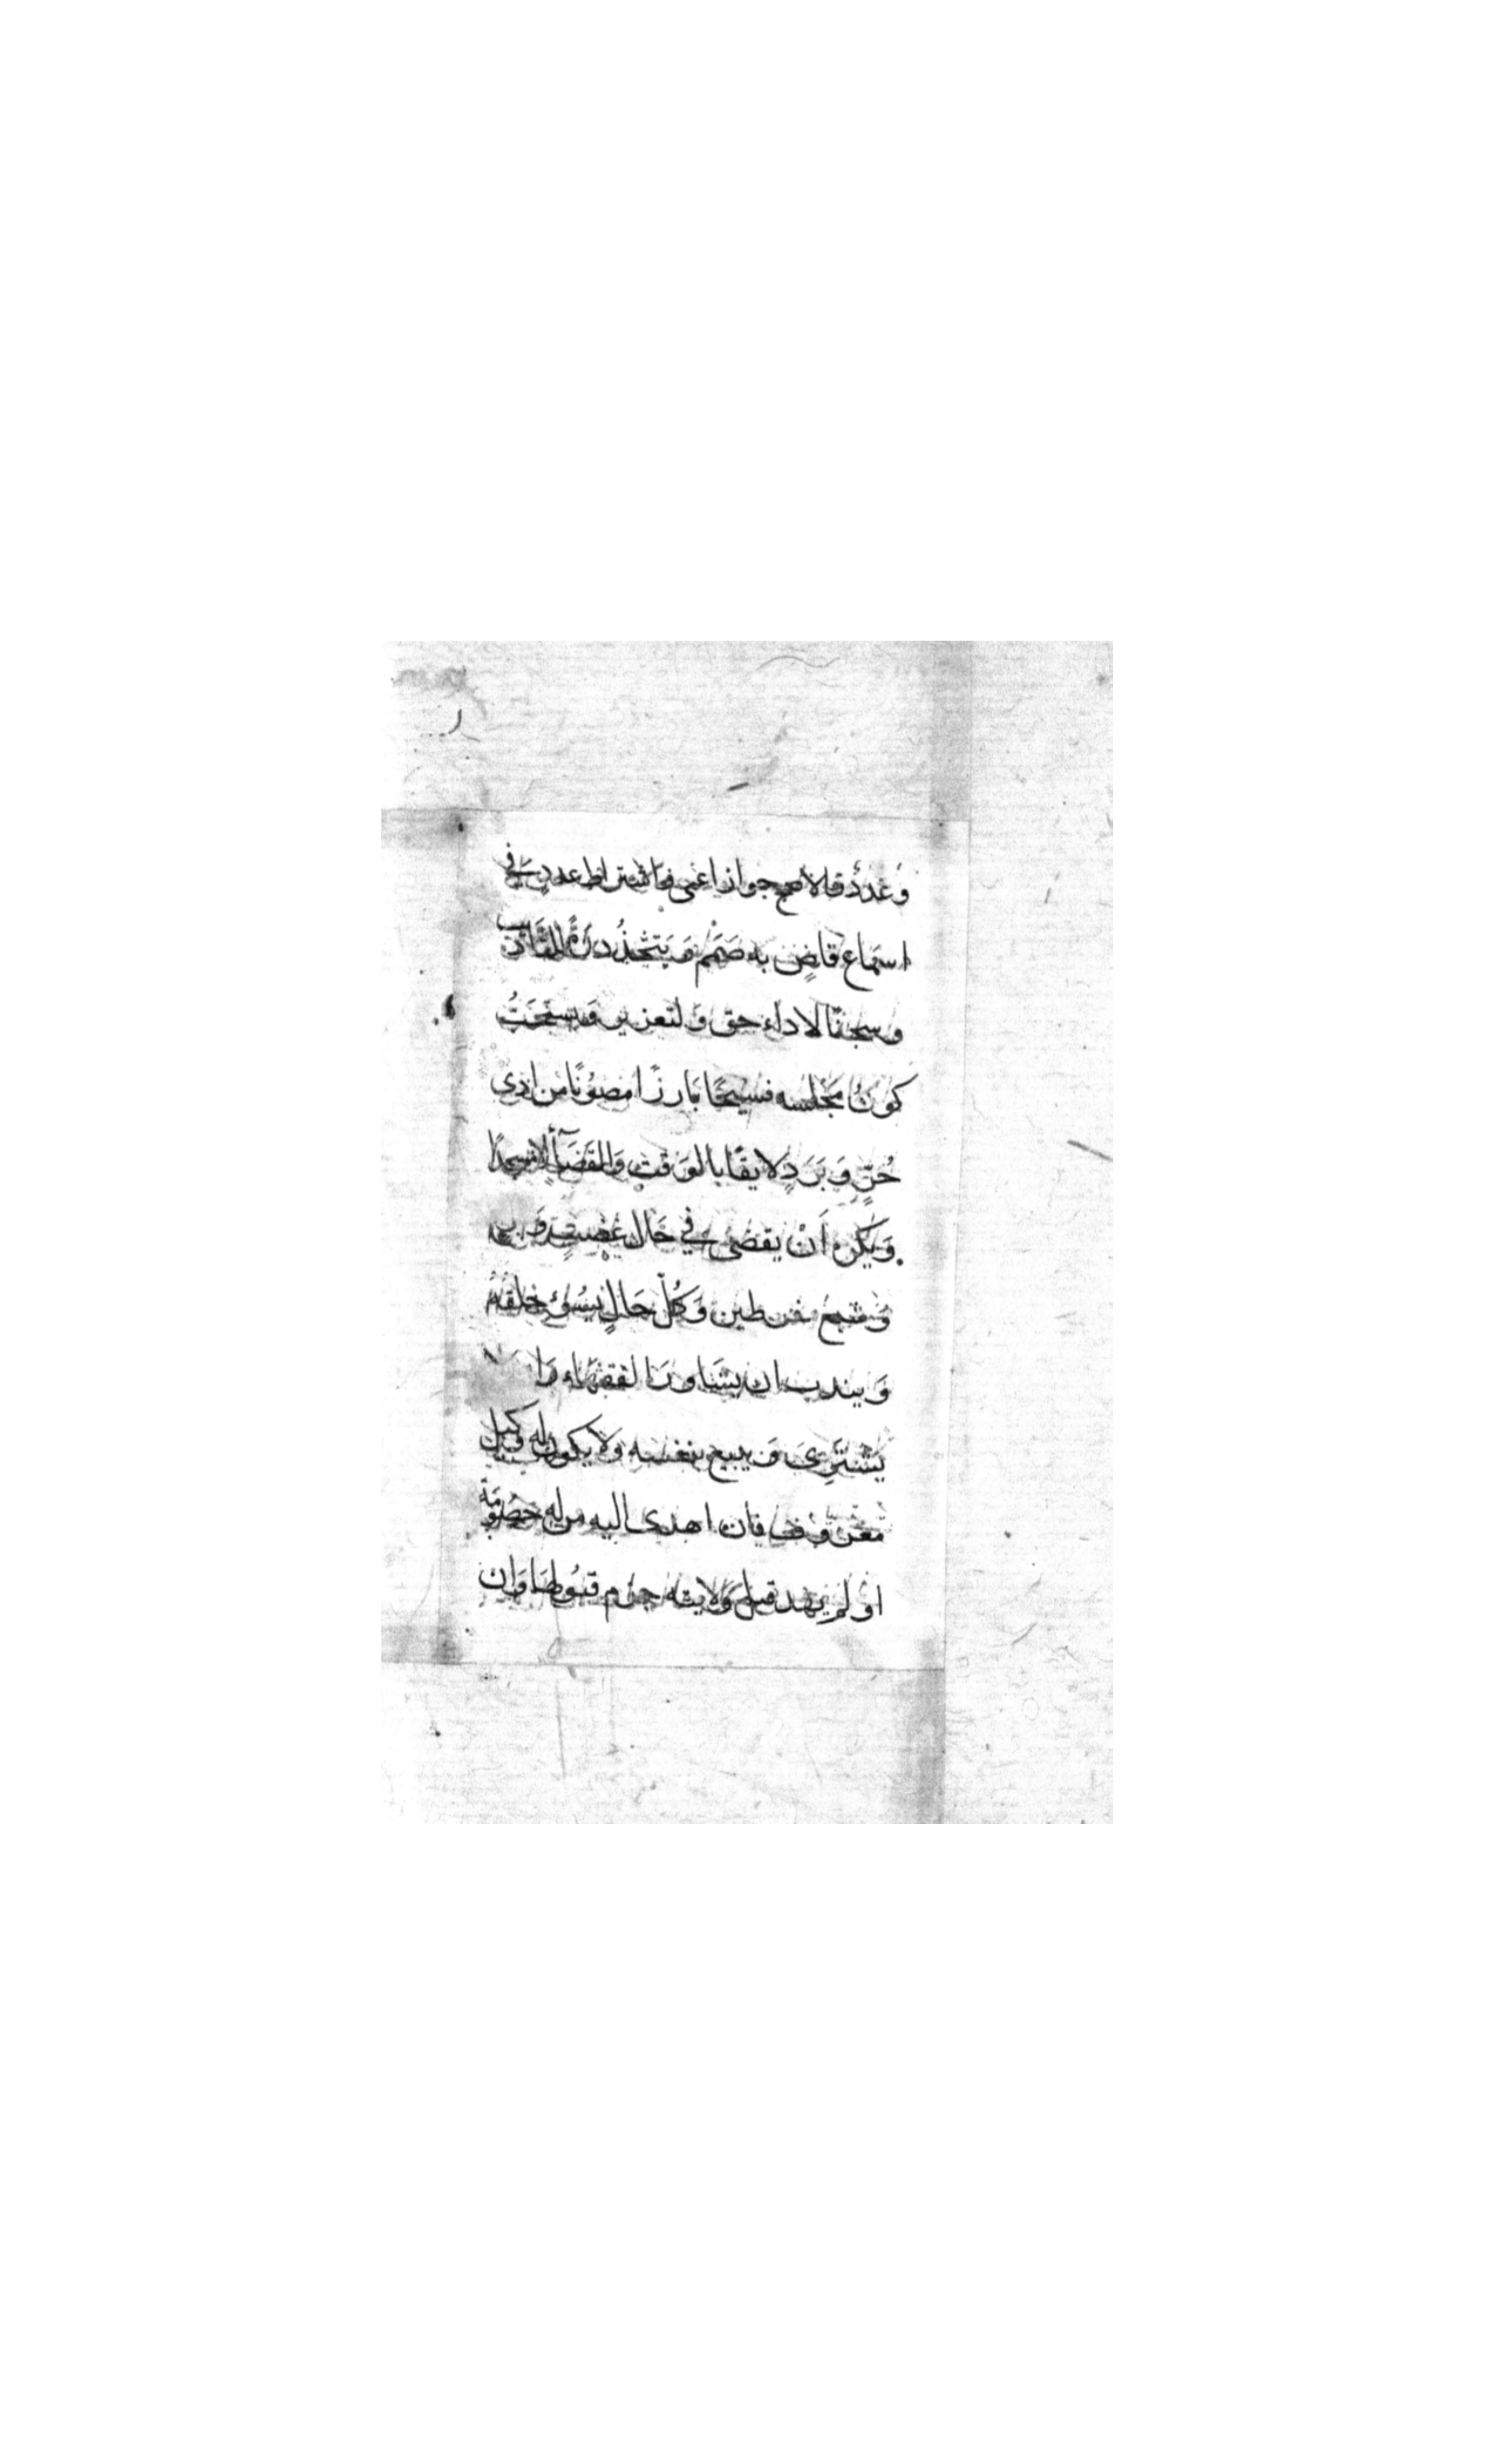 وعدد فالاصح جواز اعمى واشتراط عدد في
اسماع قاض به صمم ويتخذ درة للتأديب
وسجنا لاداء حق ولتعزير ويستحب
كون مجلسه فسيحا بارزا مصونا من اذى
حر وبرد لايقا بالوقت والقضاء لا مسجدا
ويكره أن يقضى في حال غضب وجوع
وشبع مفرطين وكل حال يسوء خلقه
ويندب ان يشاور الفقهاء ولا
يشترى ويبيع بنفسه ولا يكون له وكيل
معروف فان اهدى اليه من له خصومة
او لم يهد قبل ولايته حرم قبولها وان